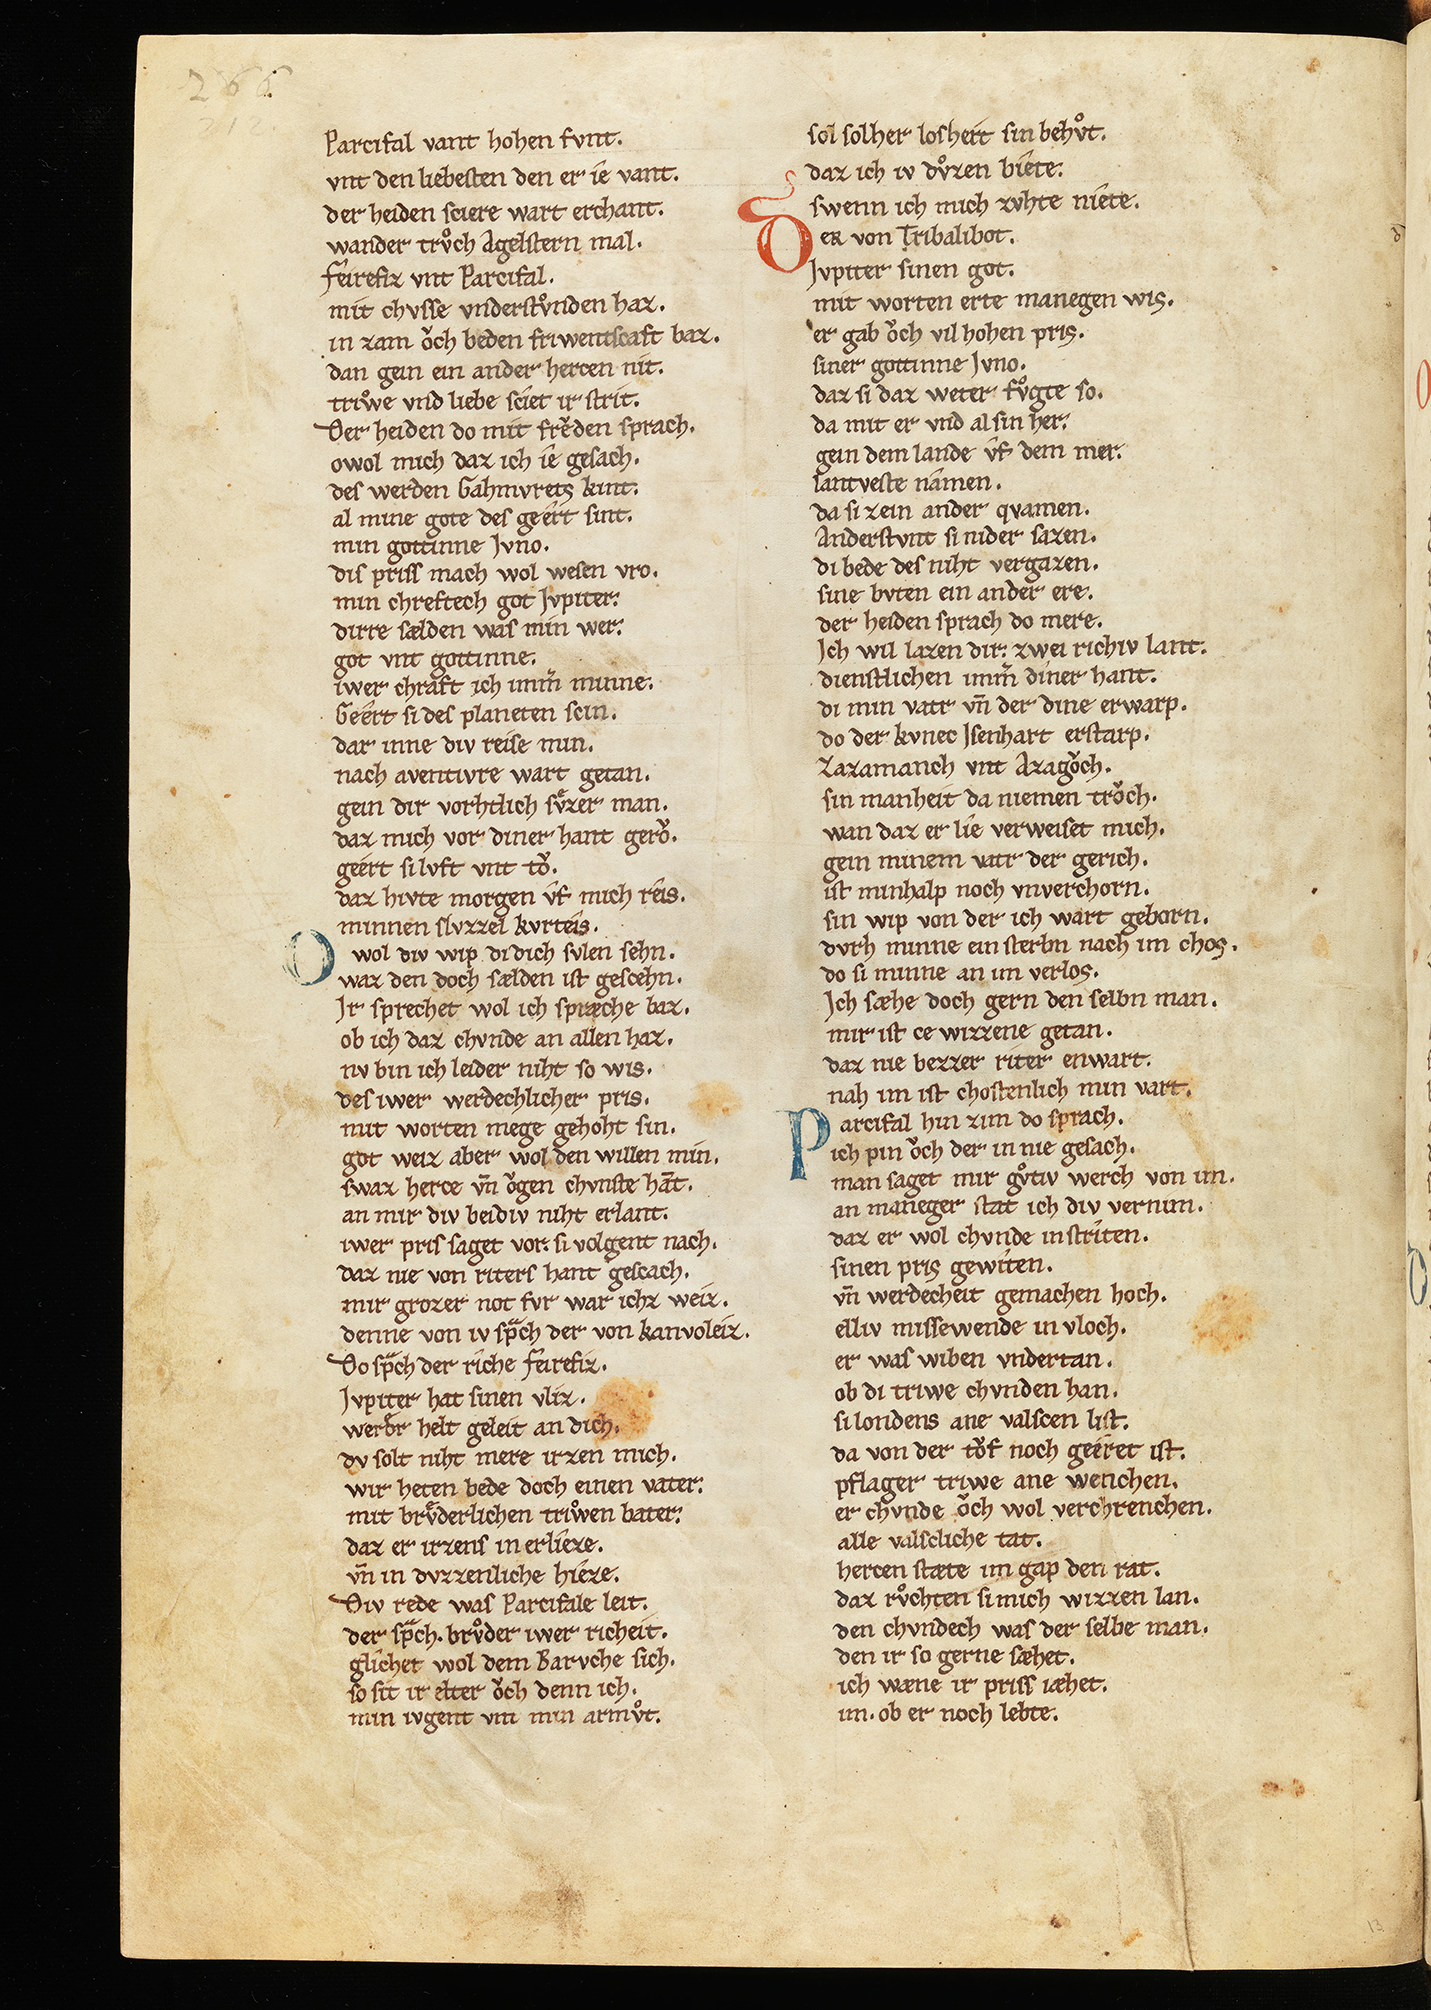 266
212.
Parcifal vant hohen fvnt.
vnt den liebesten den er ie vant.
der heiden sciere wart erchant.
wander trvͦch Agelstern mal.
feirefiz vnt Parcifal.
mit chvsse vnderstvͦnden haz.
in zam oͮch beden friwentscaft baz.
dan gein ein ander hercen nit.
triwͦe vnd liebe sciet ir strit.
Der heiden do mit freͮden sprach.
owol mich daz ich ie gesach.
des werden Gahmvrets kint.
al mine gote des geert sint.
min gottinne Jvno.
dis priss mach wol wesen vro.
min chreftech got Jvpiter.
dirre sælden was min wer.
got vnt gottinne.
iwer chraft ich imm̄ minne.
Geert si des planeten scin.
dar inne div reise min.
nach aventivre wart getan.
gein dir vorhtlich svͤzer man.
daz mich vor diner hant geroͮ.
geert si lvft vnt toͮ.
daz hivte morgen vf mich reis.
minnen slvzzel kvrteis.
Owol div wip di dich svlen sehn.
waz den doch sælden ist gescehn.
Ir sprechet wol ich spræche baz.
ob ich daz chvnde an allen haz.
nv bin ich leider niht so wis.
des iwer werdechlicher pris.
mit worten mege gehoht sin.
got weiz aber wol den willen min.
swaz herce vn̄ oͮgen chvnste hat.
an mir div beidiv niht erlant.
iwer pris saget vor: si volgent nach.
daz nie von riters hant gescach.
mir grozer not fvr war ichz weiz.
denne von iv spᷓch der von kanvoleiz.
Do spᷓch der riche feirefiz.
Jvpiter hat sinen vliz.
werder helt geleit an dich.
dv solt niht mere irzen mich.
wir heten bede doch einen vater.
mit brvͤderlichen triwͦen bater.
daz er irzens in erlieze.
vn̄ in dvzzenliche hieze.
Div rede was Parcifale leit.
der spᷓch. brvͦder iwer richeit.
glichet wol dem Barvche sich.
so sit ir elter oͮch denn ich.
min ivgent vnt min armvͦt.
sol solher losheit sin behvͦt.
daz ich iv dvͦzen biete.
swenn ich mich zvhte niete.
Der von Tribalibot.
Jvpiter sinen got.
mit worten erte manegen wis.
er gab oͮch vil hohen pris.
siner gottinne Jvno.
daz si daz weter fvͦgte so.
da mit er vnd al sin her.
gein dem lande vf dem mer.
lantveste namen.
da si zein ander qvamen.
Anderstvnt si nider sazen.
di bede des niht vergazen.
sine bvten ein ander ere.
der heiden sprach do mere.
Ich wil lazen dir: zwei richiv lant.
dienstlichen imm̄ diner hant.
di min vatr vn̄ der dine erwarp.
do der kvnec Jsenhart erstarp.
Zazamanch vnt Azagoͮch.
sin manheit da niemen troͮch.
wan daz er lie verweiset mich.
gein minem vatr der gerich.
ist minhalp noch vnverchorn.
sin wip von der ich wart geborn.
dvrh minne ein sterbn nach im chos.
do si minne an im verlos.
Ich sæhe doch gern den selbn man.
mir ist ce wizzene getan.
daz nie bezzer riter enwart.
nah im ist chostenlich min vart.
Parcifal hin zim do sprach.
ich pin oͮch der in nie gesach.
man saget mir gvͦtiv werch von im.
an maneger stat ich div vernim.
daz er wol chvnde in striten.
sinen pris gewiten.
vn̄ werdecheit gemachen hoch.
elliv missewende in vloch.
er was wiben vndertan.
ob di triwe chvnden han.
si londens ane valscen list.
da von der toͮf noch geeret ist.
pflager triwe ane wenchen.
er chvnde oͮch wol verchrenchen.
alle valscliche tat.
hercen stæte im gap den rat.
daz rvͦchten si mich wizzen lan.
den chvndech was der selbe man.
den ir so gerne sæhet.
ich wæne ir priss iæhet.
im. ob er noch lebte.
13